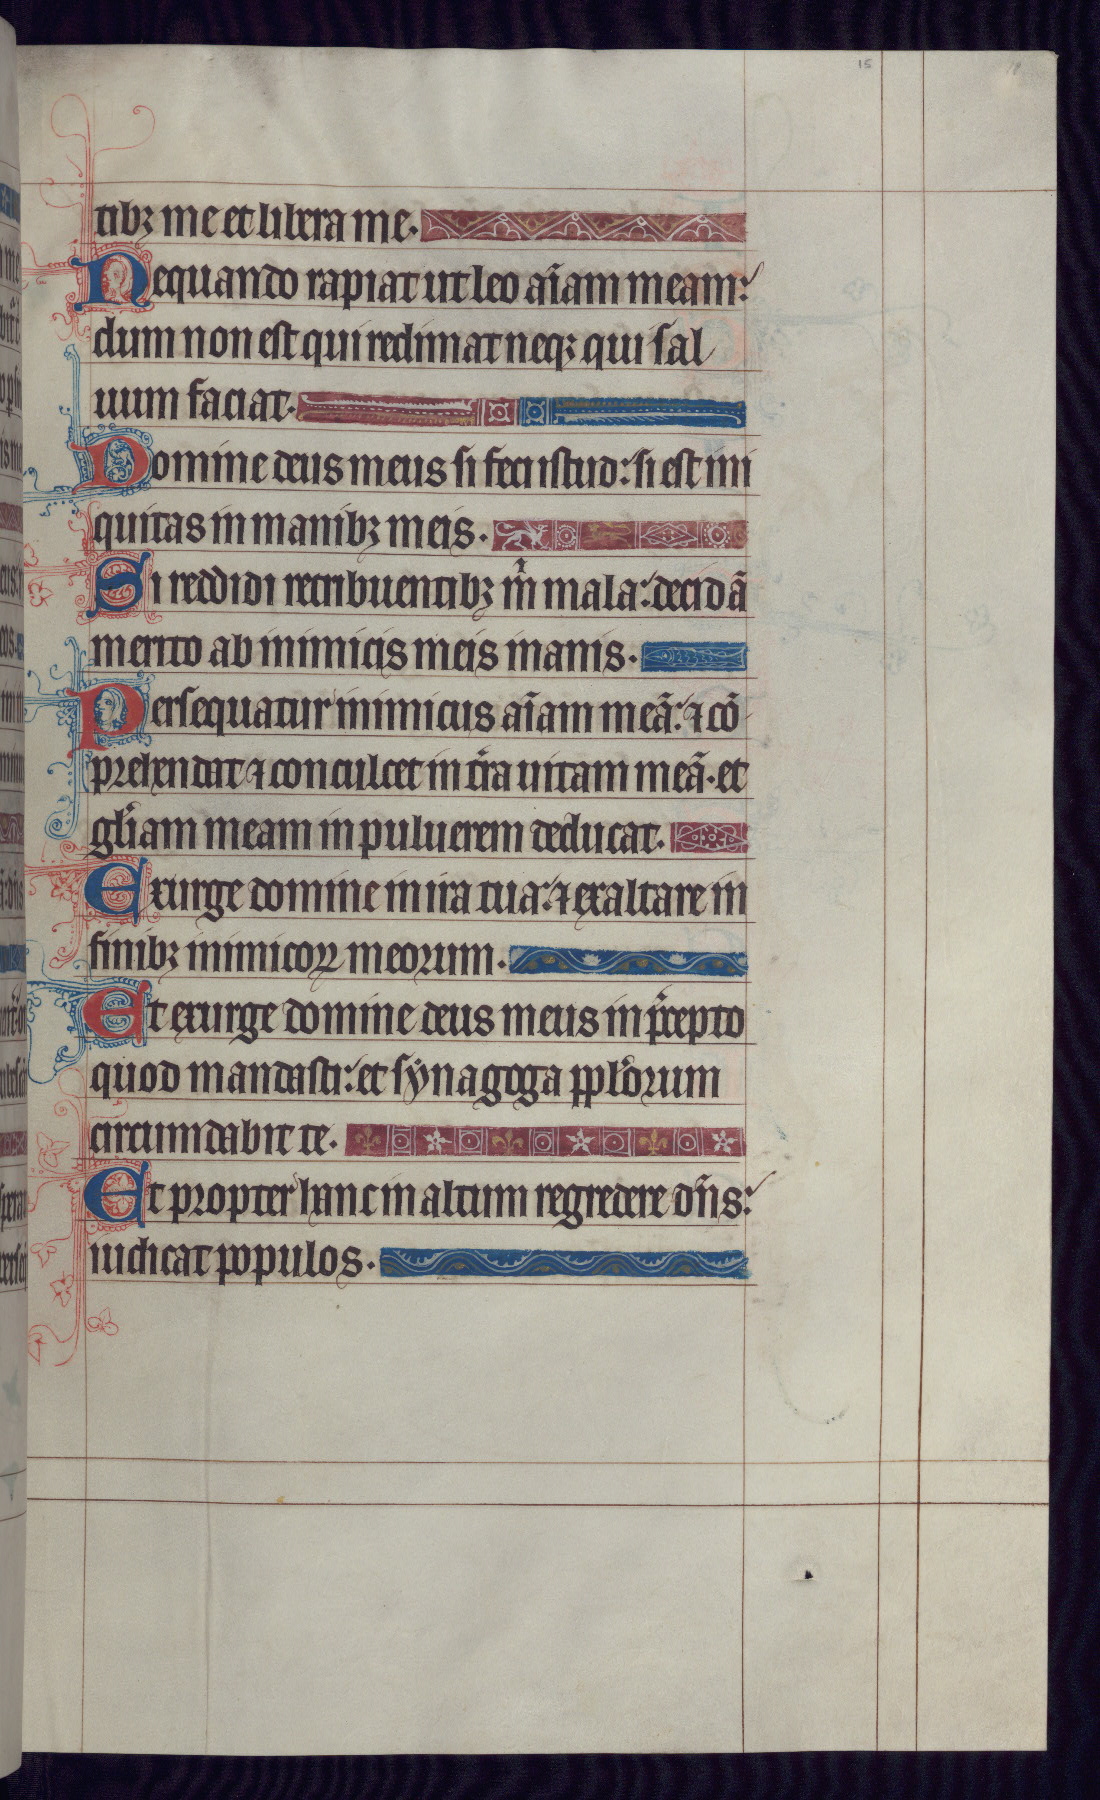 15
tibꝫ me et libera me.
Nequando rapiat ut leo aīam meam:
dum non est qui redimat neqꝫ qui sal
uum faciat.
Domine deus meus si feci istud: si est ini
quitas in manibꝫ meis.
Si reddidi retribuentibꝫ m̄ mala: decidā
merito ab inimicis meis inanis.
Persequatur inimicus aīam meā: ⁊ cō
prehendat ⁊ conculcet in t̄ra uitam meā. et
gl̄iam meam in puluerem deducat.
Exurge domine in ira tua: ⁊ exaltare in
finibꝫ inimicoꝝ meorum.
Et exurge domine deus meus in p̄cepto
quod mandasti: et synagoga ppl̄orum
circumdabit te.
Et propter hanc in altum regredere dn̄s:
iudicat populos.